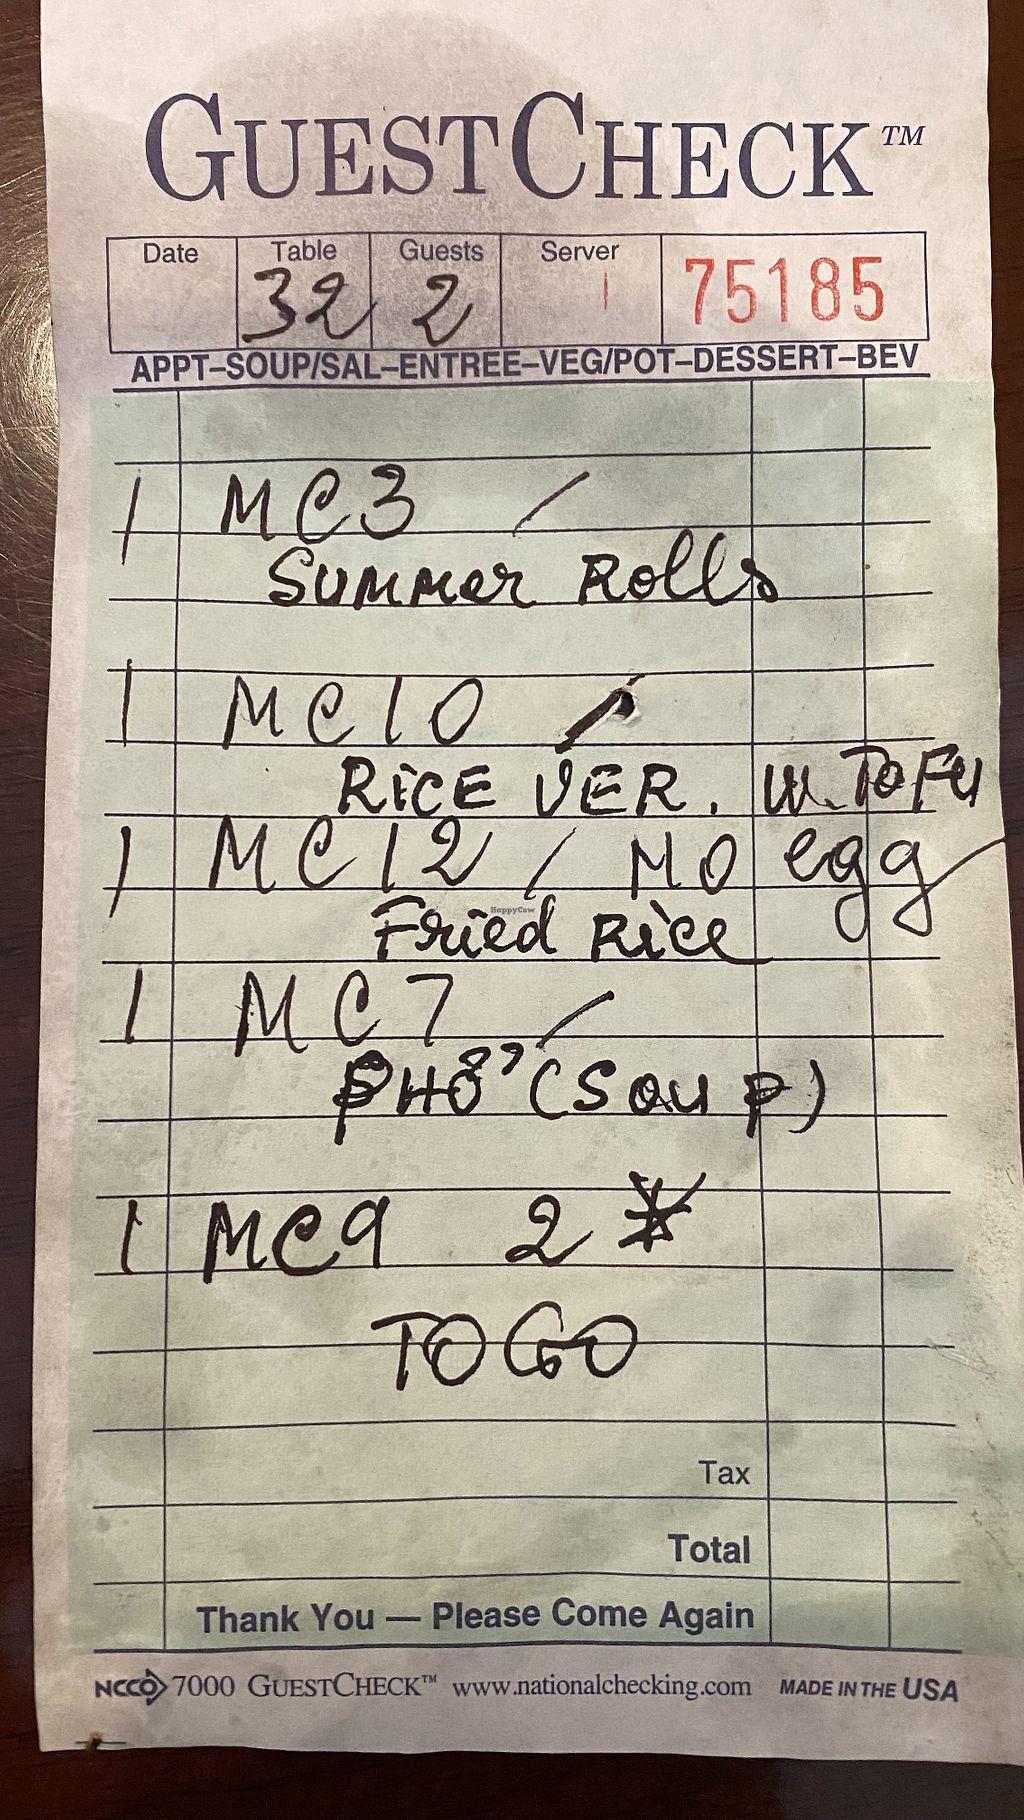 GUESTCHECK™
Date Table Guests Server
32 2 1 75185
APPT–SOUP/SAL–ENTREE–VEG/POT–DESSERT–BEV
1 MC3 /
SUMMer Rolls
1 MC10 /
RiCE VER. W. ToFu
1 MC12 / NO egg
HappyCow
Fried Rice
1 MC7 /
PHỞ (Soup)
1 MC9 2 *
TO GO
Tax
Total
Thank You — Please Come Again
NCCO 7000 GUESTCHECK™ www.nationalchecking.com MADE IN THE USA